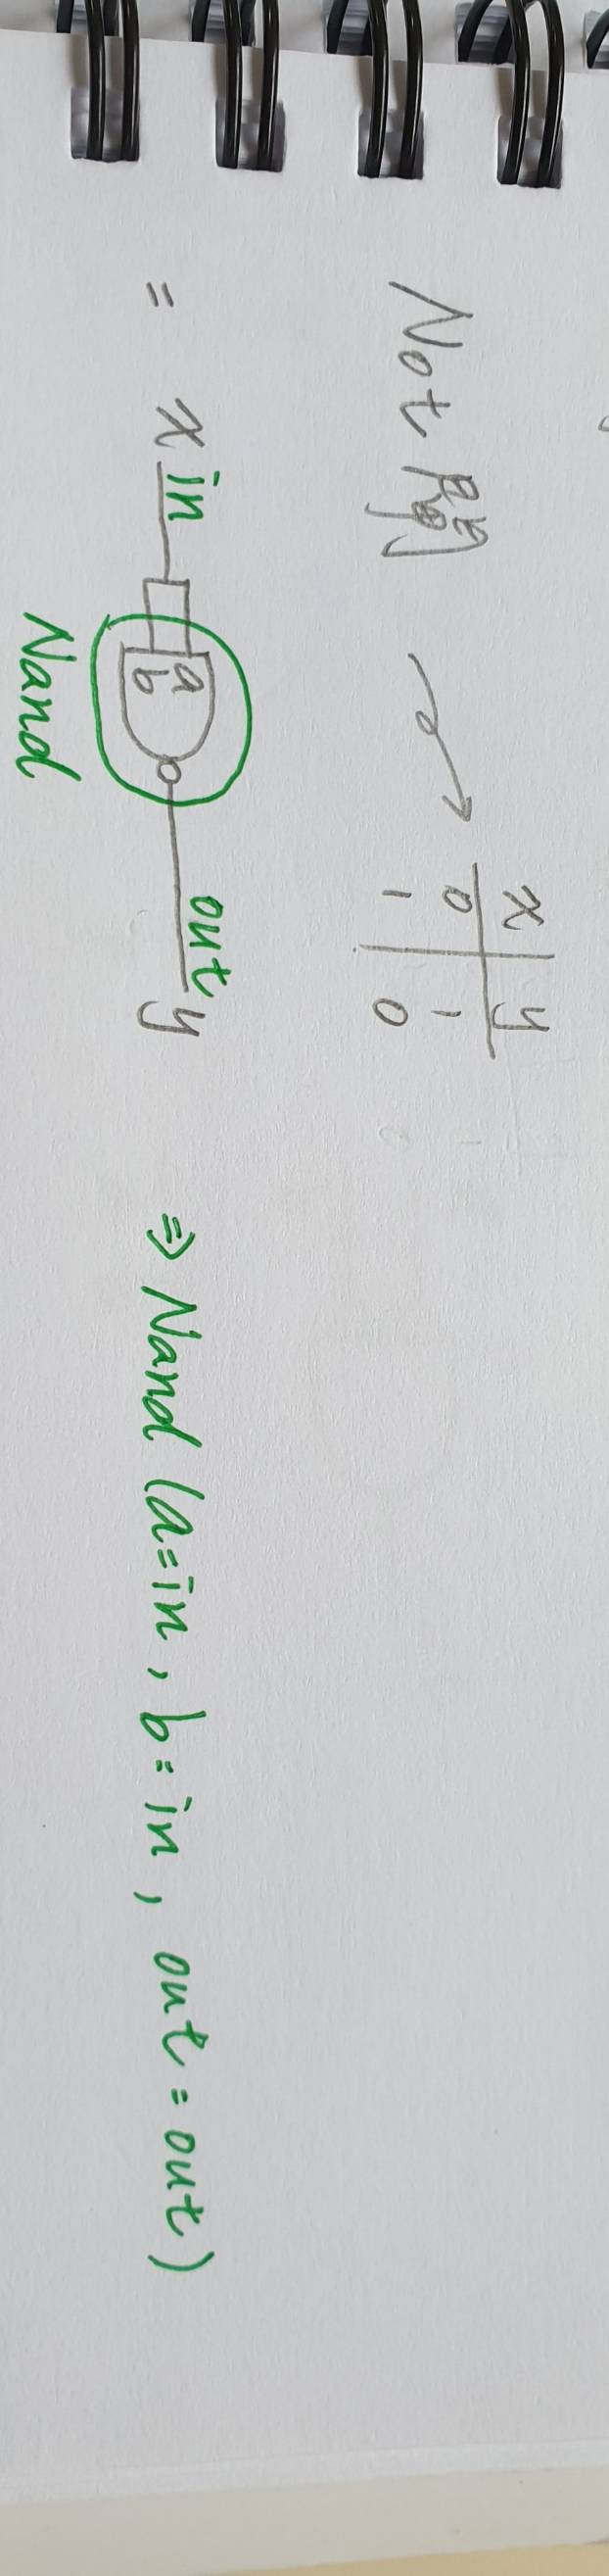 Not 閘
x y
0 1
1 0
= x in a b out y
Nand
⇒ Nand (a=in, b=in, out=out)